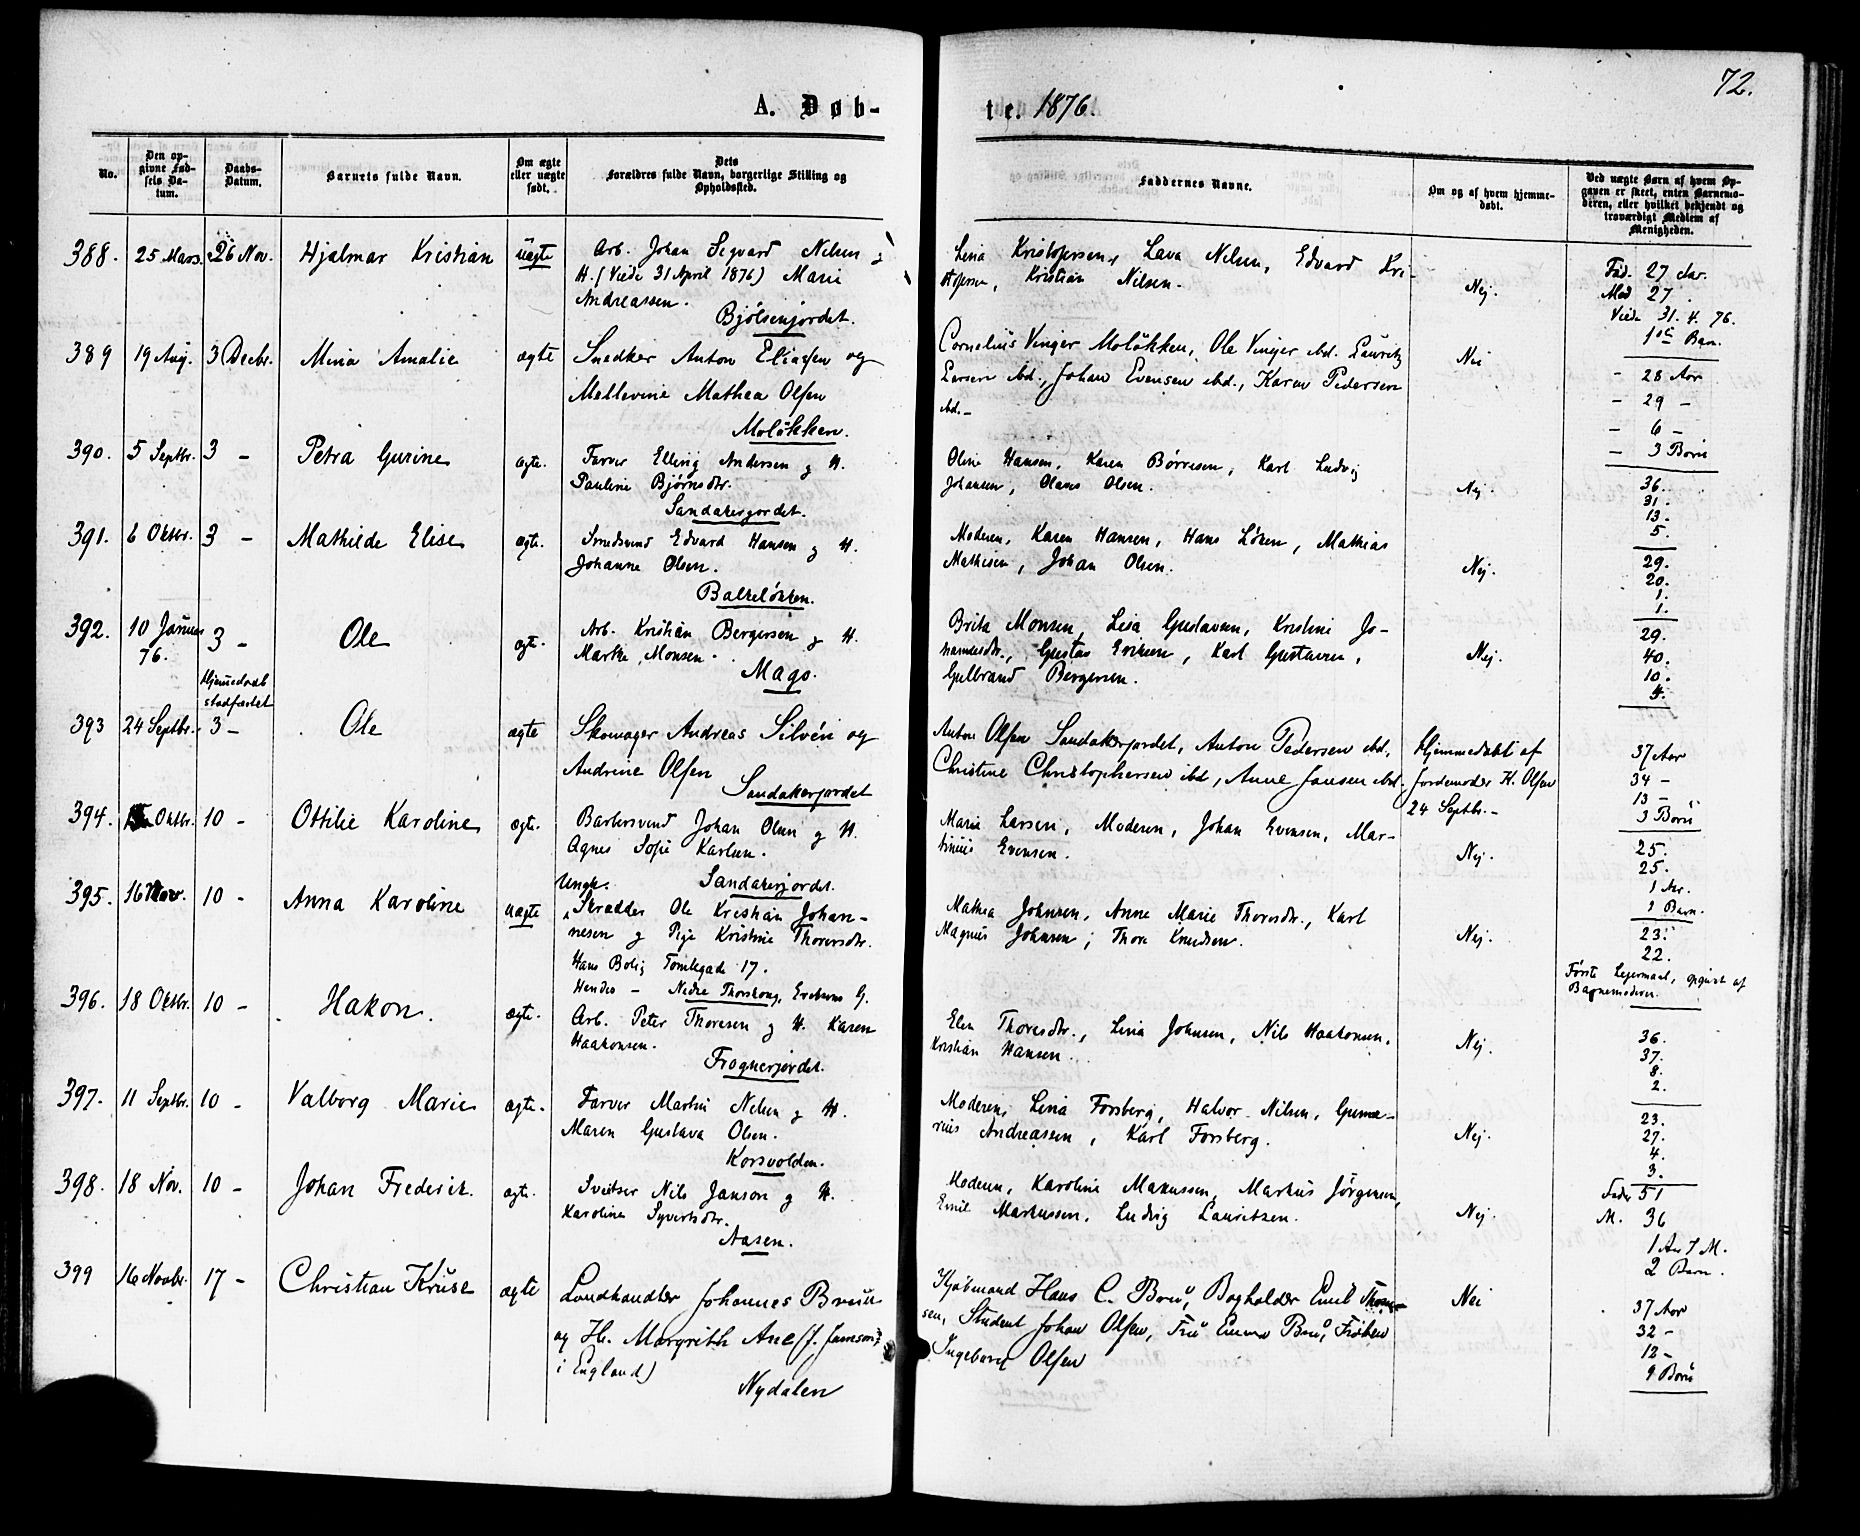 72.
A. Døb-
te. 1876.
No.
Den op-
givne Fød-
sels Da-
tum.
Daabs-
Datum.
Barnets fulde Navn.
Om ægte
eller uægte
født.
Dets
Forældres fulde Navn, borgerlige Stilling og
Opholdssted.
Faddernes Navne.
Om og af hvem hjemme-
døbt.
Ved uægte Børn af hvem Op-
gaven er skeet, enten Barnemo-
deren, eller hvilket bekjendt og
troværdigt Medlem af
Menigheden.
388. 25 Mars. 26 Nov. Hjalmar Kristian uægte
Arb. Johan Sigvard Nilsen g
H. (Viede 31 April 1876) Marie
Andreassen.
Bjölsenjordet.
Lina Kristofersen, Lava Nelsen, Edvard Kri-
stofersen, Kristian Nilsen.
Nej.
Fad. 27 Aar.
Mod 27
Viede 31. 4. 76.
1ste Barn.
389 19 Aug. 3 Decbr. Mina Amalie ægte
Snedker Anton Eliassen og
Mellevine Mathea Olsen
Moløkken.
Cornelius Vinger Moløkken, Ole Vinger ibd. Lauritz
Larsen ibd., Johan Evensen ibd., Karen Pedersen
ibd. -
Nei
- 28 Aar
- 29 -
- 6 -
- 3 Børn
390. 5 Septbr. 3 - Petra Gurine ægte.
Farver Elling Andersen g H.
Pauline Bjørnsdtr.
Sandakerjordet.
Oline Hansen, Karen Børresen, Karl Ludvig
Johansen, Olaus Olsen.
Nej.
36.
31.
13.
5.
391. 6 Oktbr. 3 - Mathilde Elise ægte.
Smedsvend Edvard Hansen g H.
Johanne Olsen.
Balkeløkken.
Moderen, Karen Hansen, Hans Löken, Mathias
Mathisen, Johan Olsen.
Nej.
29.
20.
1.
1.
392. 10 Januar
76. 3 - Ole ægte.
Arb. Kristian Bergersen g H.
Marthe Monsen.
Mago.
Brita Monsen, Lisa Gustavsen, Kristine Jo-
hannesdtr., Gustav Eriksen, Karl Gustavsen,
Gulbrand Bergersen.
Nej.
29.
40.
10.
4.
Hjemmedaab
stadfæstet
393 24 Septbr. 3 - Ole ægte
Skomager Andreas Silvén og
Andrine Olsen
Sandakerjordet
Anton Olsen Sandakerjordet, Anton Pedersen ibd,
Christine Christophersen ibd, Anne Jansen ibd.
Hjemmedøbt af
Jordemoder K. Olsen
24 Septbr. -
37 Aar
34 -
13 -
3 Børn
394. Oktbr. 10 - Ottilie Karoline ægte.
Barbersvend Johan Olsen g H.
Agnes Sofie Karlsen.
Sandakerjordet.
Marie Larsen, Moderen, Johan Evensen, Mar-
tinius Evensen.
Nej.
25.
25.
1 Aar.
1 Barn.
395. 16 Nov. 10 - Anna Karoline uægte
Ungk.
Skrædder Ole Kristian Johan-
nesen g Pige Kristine Thoresdtr.
Hans Bolig Tomtegade 17.
Hendes - Nedre Thorshoug, Eriksens G.
Mathea Johnsen, Anne Marie Thoresdtr., Karl
Magnus Johnsen, Thore Knudsen.
Nej.
23.
22.
Første Leiermaal, opgivet af
Barnemoderen.
396. 18 Oktbr. 10 - Hakon. ægte.
Arb. Peter Thoresen g H. Karen
Haakonsen.
Frognerjordet.
Elen Thoresdtr., Lina Johnsen, Nils Haakonsen,
Kristian Hansen.
Nej.
36.
37.
8.
2.
397. 11 Septbr. 10 - Valborg Marie ægte.
Farver Martin Nelsen g H.
Maren Gustava Olsen.
Korsvolden.
Moderen, Lina Forsberg, Halvor Nilsen, Guma-
rius Andreassen, Karl Forsberg.
Nej.
23.
27.
4.
3.
398. 18 Nov. 10 - Johan Frederik. ægte.
Sveitser Nils Janson g H.
Karoline Syvertsdtr.
Aasen.
Moderen, Karoline Markussen, Markus Jörgensen,
Emil Markussen, Ludvig Lauritzen.
Nej.
Fader 51
M. 36
1 Aar 7 M.
2 Barn.
399 16 Novbr. 17 - Christian Kruse ægte
Landhandler Johannes Bruu
og H. Margrith Ane (f. Jamson
i England)
Nydalen
Kjøbmand Hans C. Bru, Bogholder Emil Thom-
sen, Student Johan Olsen, Fru Emma Bru, Frøken
Ingeborg Olsen
Nei
37 Aar
32 -
12 -
9 Børn